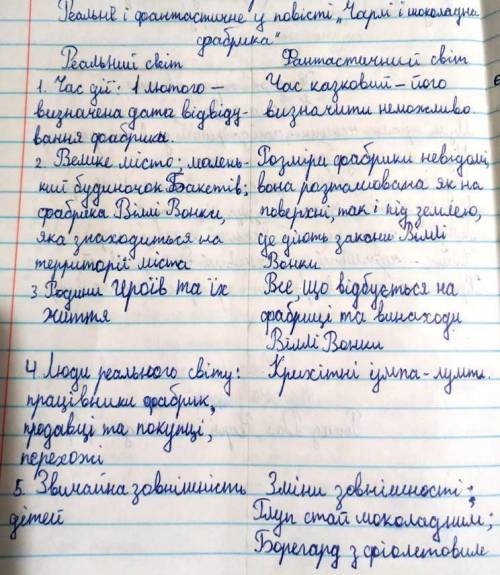 Реальне і фантастичне у повісті „Чарлі і шоколадна
фабрика"
Реальний світ
Фантастичний світ
1. Час дії: 1 лютого –
визначена дата відвіду-
вання фабрики.
Час казковий – його
визначити неможливо.
2. Велике місто; малень-
кий будиночок Бакетів;
фабрика Віллі Вонки,
яка знаходиться на
территорії міста
Розміри фабрики невідомі,
вона розташована як на
поверхні, так і під землею,
де діють закони Віллі
Вонки
3. Родини героїв та їх
життя
Все, що відбується на
фабриці та винаходи
Віллі Вонки
4. Люди реального світу:
працівники фабрик,
продавці та покупці,
перехожі
Крихітні умпа-лумпи.
5. Звичайна зовнішність
дітей
Зміни зовнішності:
Глуп став шоколадним;
Борегард з фіолетовим